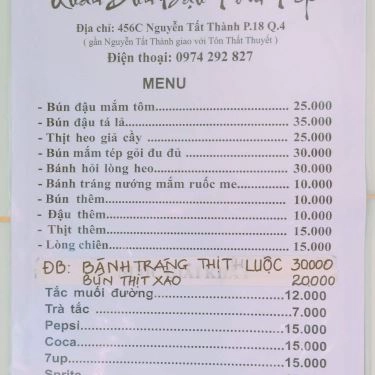 Quán Bún Đậu Mắm Tép
Địa chỉ: 456C Nguyễn Tất Thành P.18 Q.4
( gần Nguyễn Tất Thành giao với Tôn Thất Thuyết )
Điện thoại: 0974 292 827
MENU
- Bún đậu mắm tôm 25.000
- Bún đậu tá lả 35.000
- Thịt heo giả cầy 25.000
- Bún mắm tép gỏi đu đủ 30.000
- Bánh hỏi lòng heo 30.000
- Bánh tráng nướng mắm ruốc me 10.000
- Bún thêm 10.000
- Đậu thêm 10.000
- Thịt thêm 15.000
- Lòng chiên 15.000
ĐB: BÁNH TRANG THỊT LUỘC 30000
BÚN THỊT XÀO 20000
Tắc muối đường 12.000
Trà tắc 7.000
Pepsi 15.000
Coca 15.000
7up 15.000
Sprite